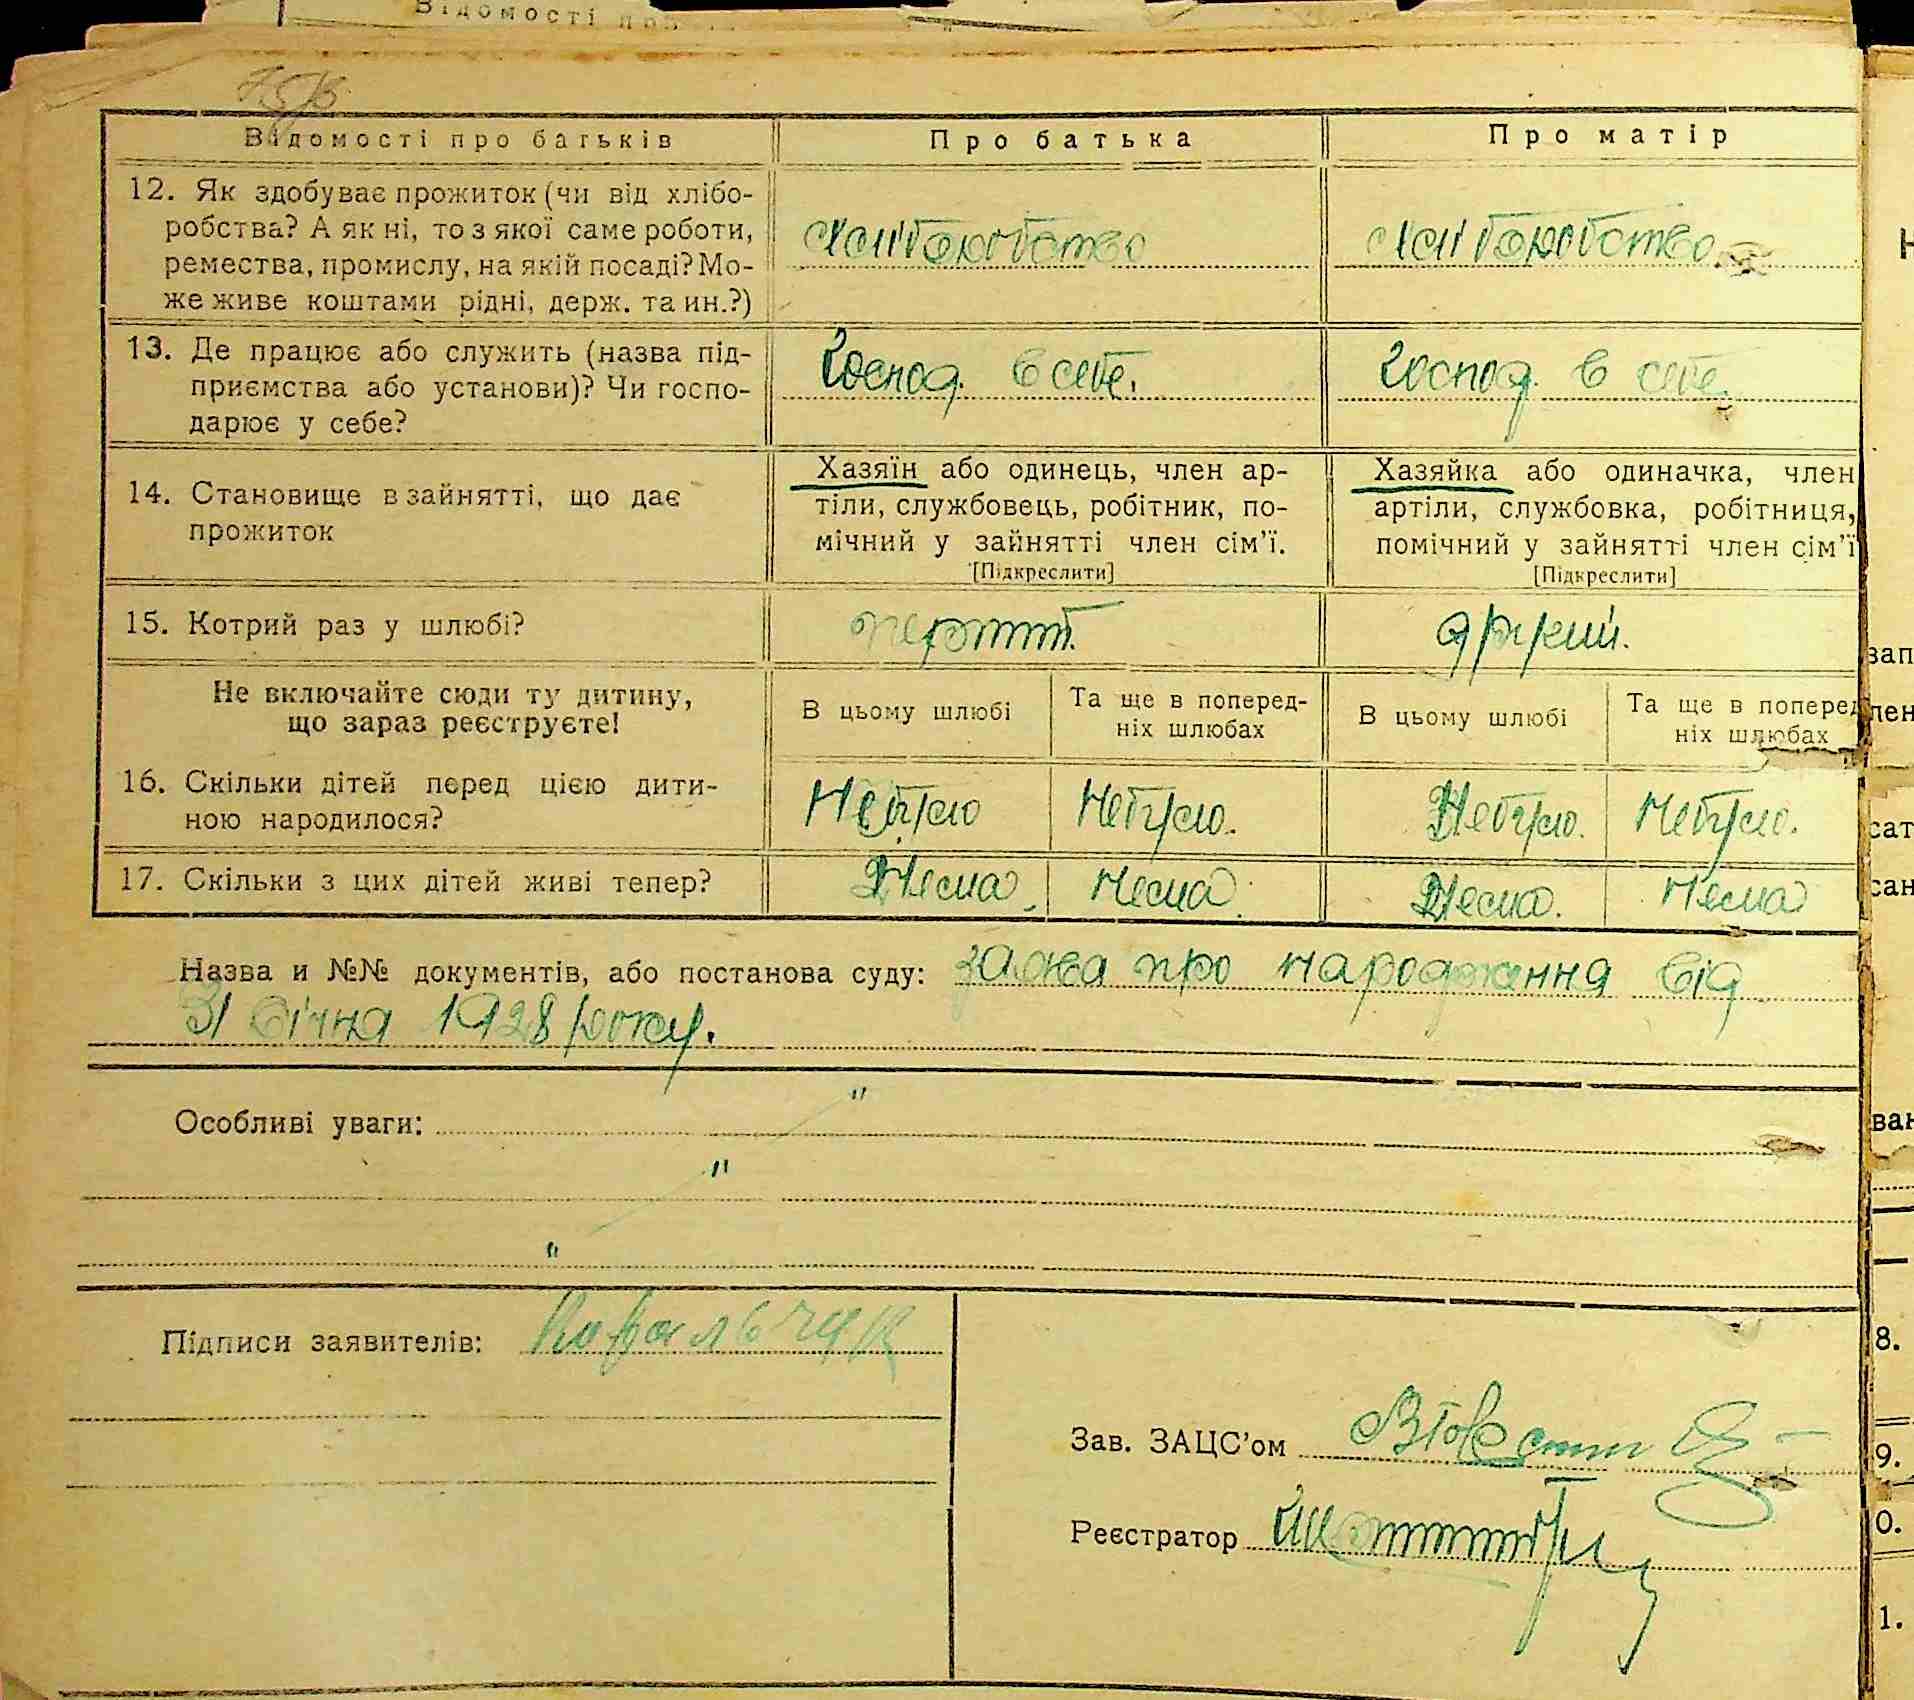 Відомості про
Відомості про батьків Про батька Про матір
12. Як здобуває прожиток (чи від хлібо-
робства? А як ні, то з якої саме роботи,
ремества, промислу, на якій посаді? Мо-
же живе коштами рідні, держ. та ин.?)
Хліборобство Хліборобство
13. Де працює або служить (назва під-
приємства або установи)? Чи госпо-
дарює у себе?
Господ. в себе. Господ. в себе.
14. Становище в зайнятті, що дає
прожиток
Хазяїн або одинець, член ар-
тіли, службовець, робітник, по-
мічний у зайнятті член сім'ї.
[Підкреслити]
Хазяйка або одиначка, член
артіли, службовка, робітниця,
помічний у зайнятті член сім'ї
[Підкреслити]
15. Котрий раз у шлюбі? другий.
Не включайте сюди ту дитину,
що зараз реєструєте!
В цьому шлюбі
Та ще в поперед-
ніх шлюбах
В цьому шлюбі
Та ще в поперед
ніх шлюбах
16. Скільки дітей перед цією дити-
ною народилося?
Небуло Небуло. Небуло. Небуло.
17. Скільки з цих дітей живі тепер? Нема. Нема. Нема. Нема
Назва и №№ документів, або постанова суду: заява про народження від
31 січня 1928 року.
Особливі уваги: "
"
"
Підписи заявителів: Ковальчук
Зав. ЗАЦС'ом
Реєстратор
зап
лен
сат
сан
ван
8.
9.
0.
1.